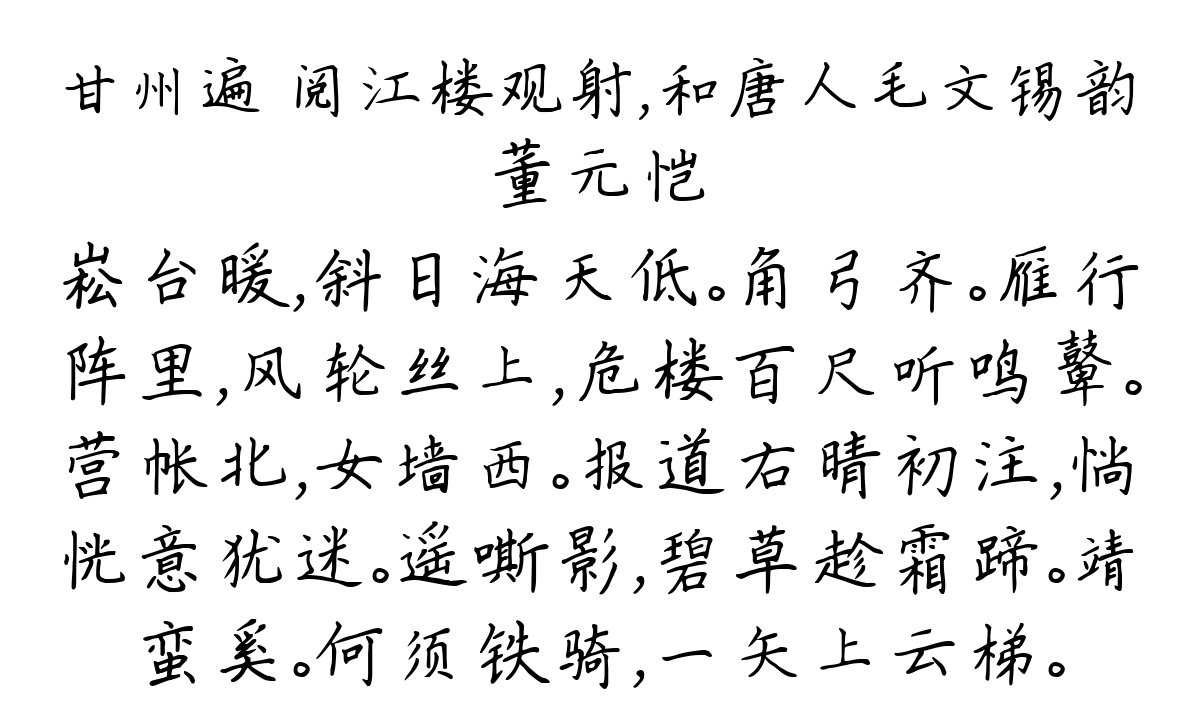 甘州遍 阅江楼观射,和唐人毛文锡韵
董元恺
崧台暖,斜日海天低。角弓齐。雁行
阵里,风轮丝上,危楼百尺听鸣鼙。
营帐北,女墙西。报道右晴初注,惝
恍意犹迷。遥嘶影,碧草趁霜蹄。靖
蛮奚。何须铁骑,一矢上云梯。